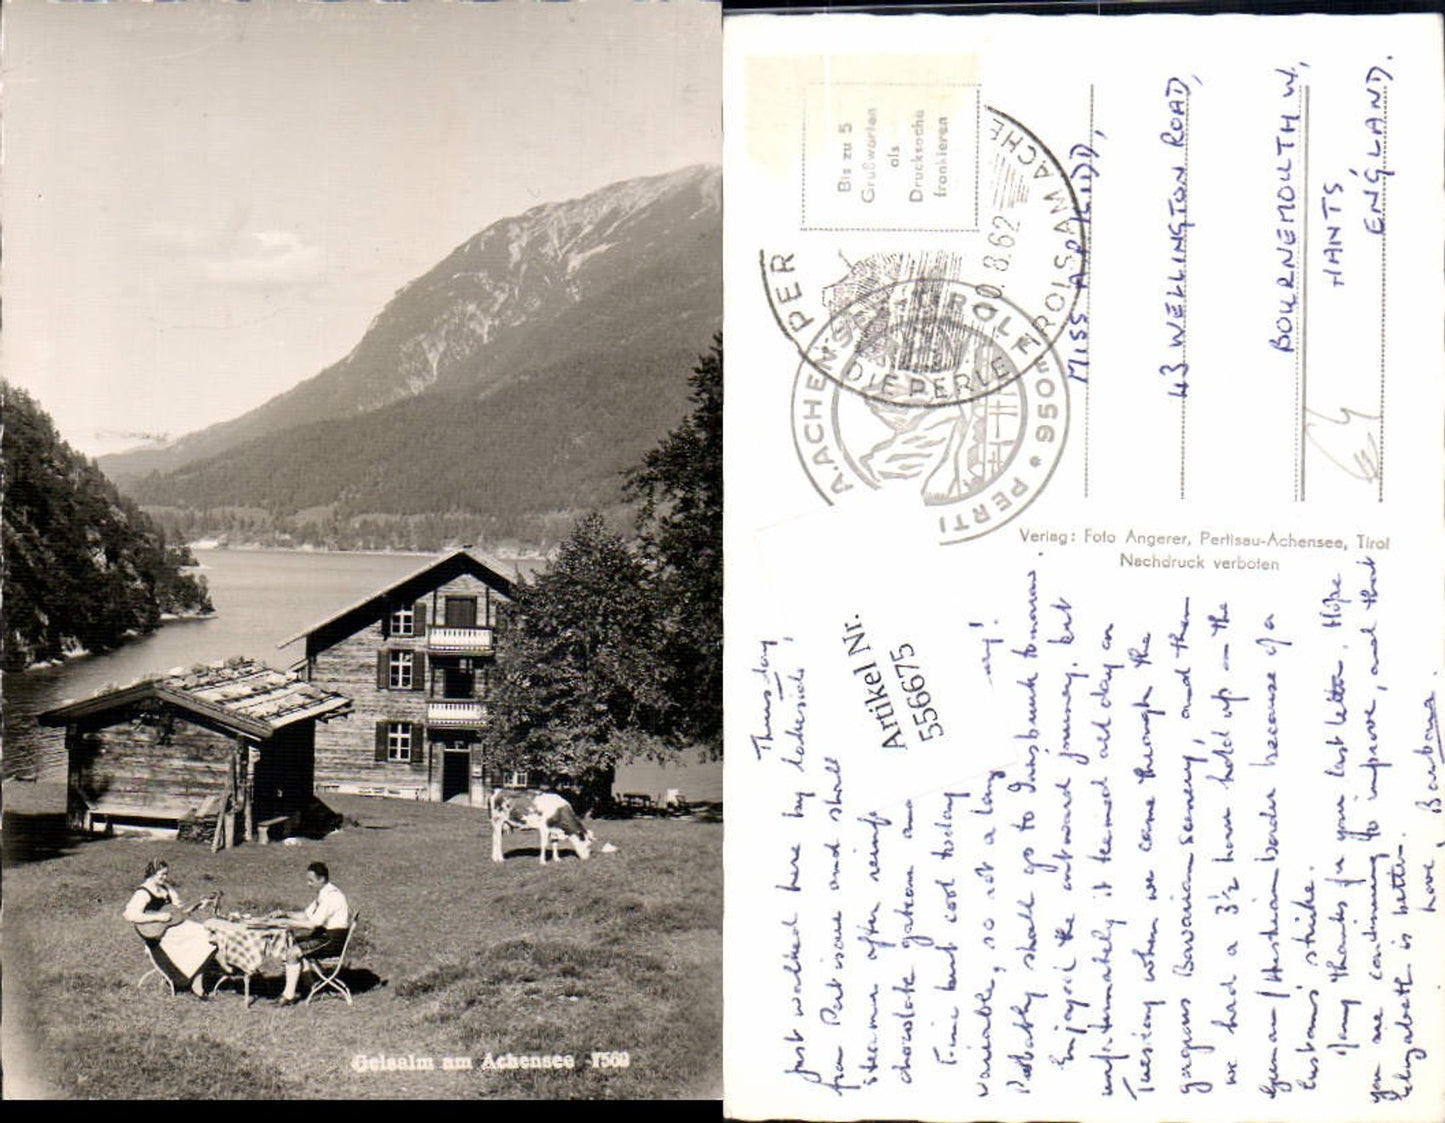 Geisalm am Achensee 1569
Bis zu 5
Grußworten
als
Drucksache
frankieren
TIROLS AM ACHE
PER
DIE PERLE TIROLS
0.8.62
A. ACHEN
TIROL
PERTI
MISS A.P. KIDD,
43 WELLINGTON ROAD,
BOURNEMOUTH W,
HANTS,
ENGLAND.
Verlag: Foto Angerer, Pertisau-Achensee, Tirol
Nachdruck verboten
Artikel Nr.
556675
Thursday
Just walked here by lakeside,
from Pertisau and shall
steamer after
chocolate gateau
Fine but cool today
variable, so not a long
Probably shall go to Innsbruck tomorrow.
Enjoyed the outward journey, but
unfortunately it teemed all day on
Tuesday when we came through the
gorgeous Bavarian scenery, and then
we had a 3½ hour hold up — the
German/Austrian border because of a
customs' strike.
Many thanks for your last letter. Hope
you are continuing to improve, and that
Elizabeth is better.
Love, Barbara.